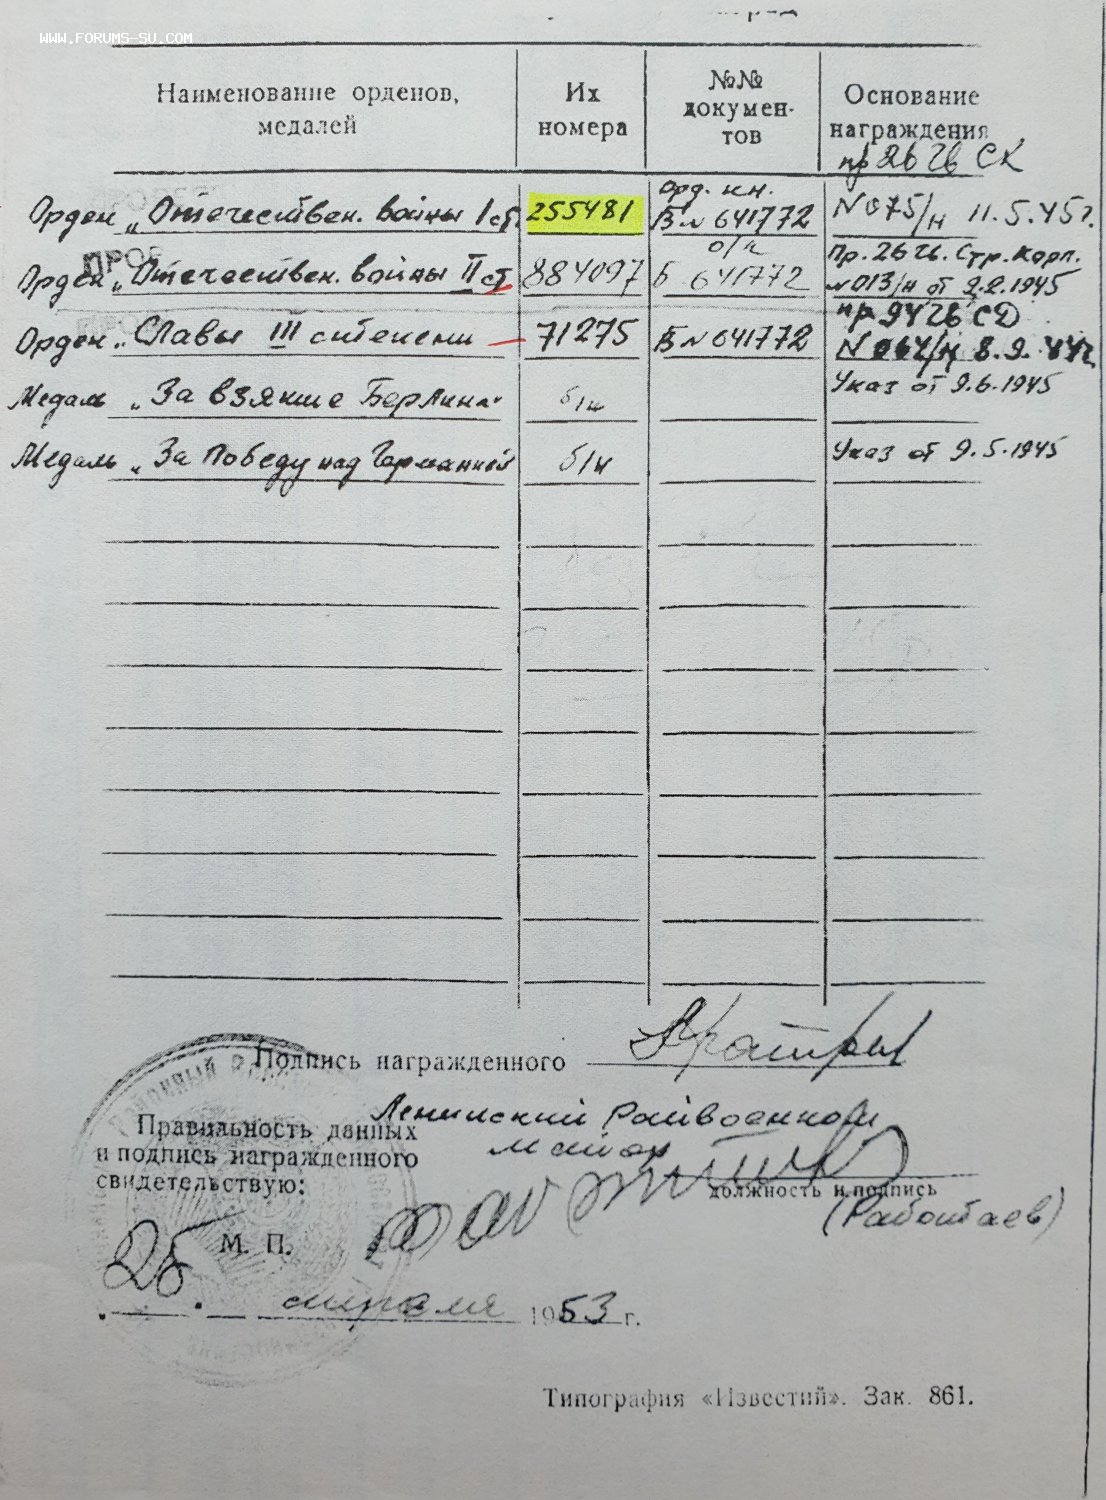 WWW.FORUMS-SU.COM
Наименование орденов, медалей
Их номера
№№ докумен-тов
Основание награждения
пр 26 Гв СК
Орден „Отечествен. войны I ст.
255481
Орд. кн.
В № 641772
N 075/н 11.5.45 г.
ПРОВ
Орден „Отечествен. войны II ст
884097
о/к
Б 641772
Пр. 26 Гв. Стр. Корп.
№ 013/н от 2.2.1945
Орден „Славы III степени
71275
В № 641772
пр 94 Гв СД
N 064/н 8.9.44 г
Медаль „За взятие Берлина"
б/н
Указ от 9.6.1945
Медаль „За Победу над Германией
б/н
Указ от 9.5.1945
Подпись награжденного
Правильность данных
и подпись награжденного
свидетельствую:
Ленинский Райвоенком
майор
должность и подпись
(Работаев)
М. П.
25
1953 г.
Типография «Известий». Зак. 861.